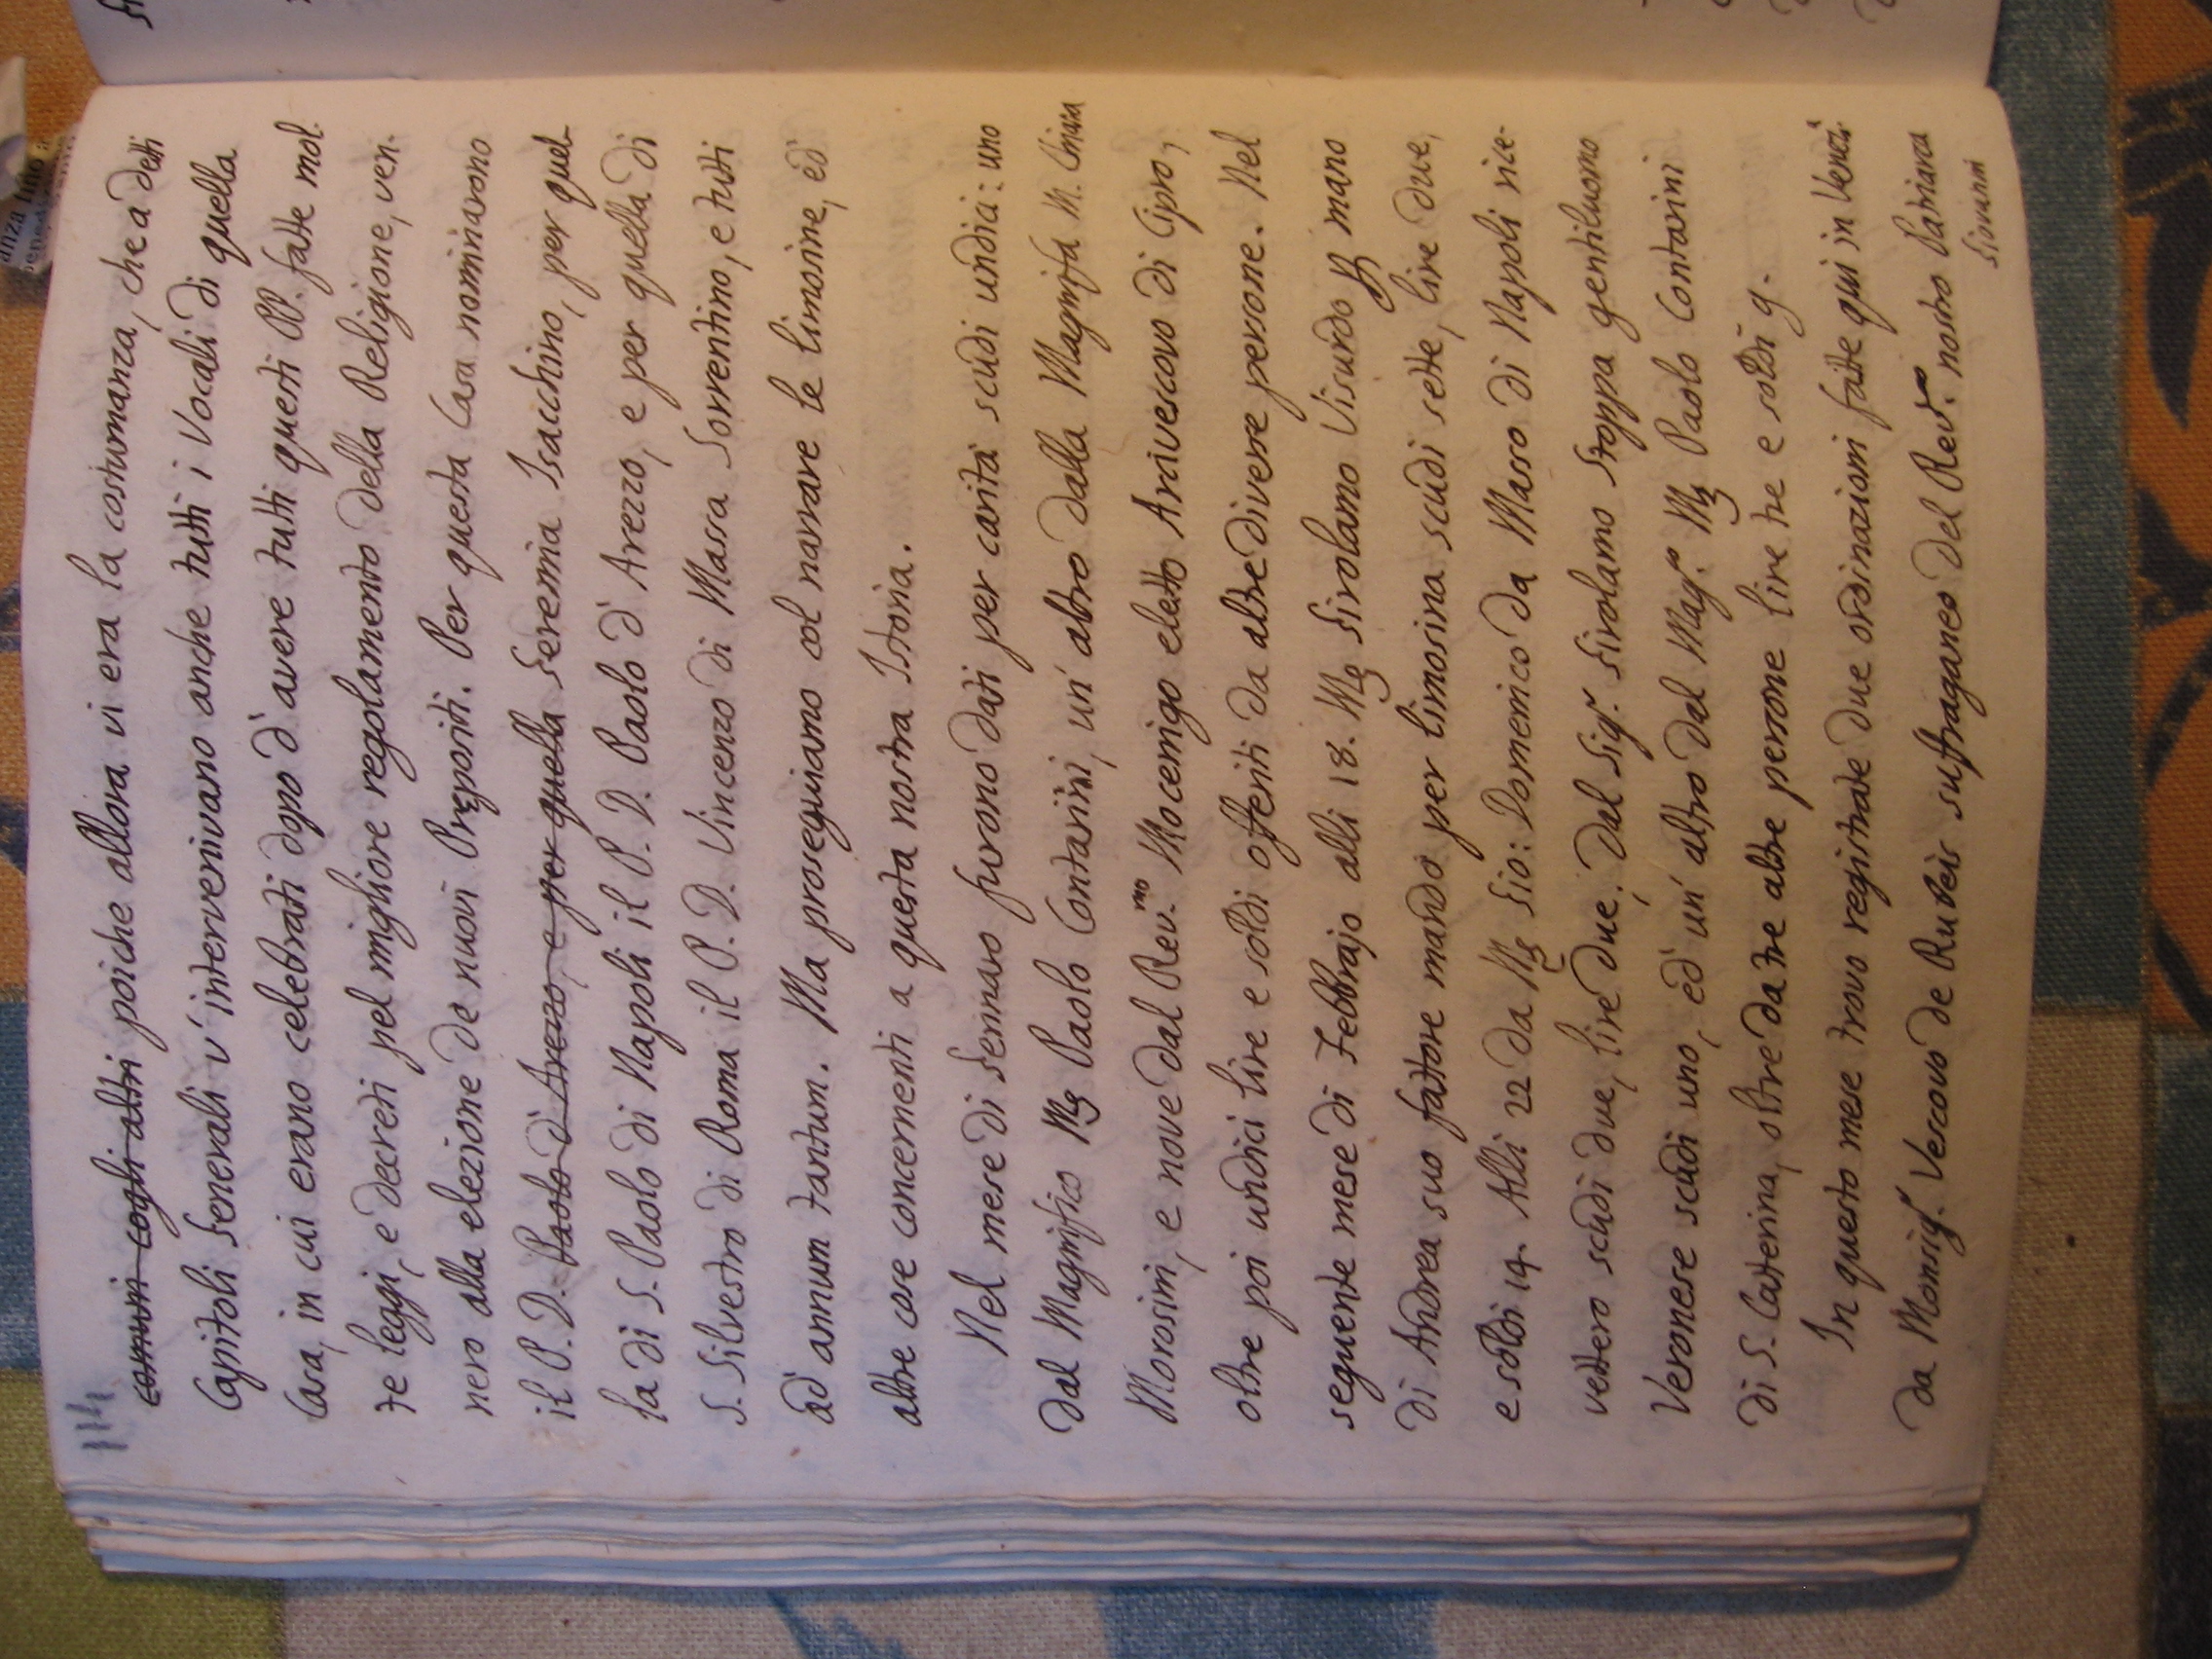 114
comuni cogli altri poiche allora vi era la costumanza, che a detti
Capitoli Generali v'intervenivano anche tutti i Vocali di quella
Casa, in cui erano celebrati dopo d'avere tutti questi PP. fatte mol-
te leggi, e decreti pel migliore regolamento della Religione, ven-
nero alla elezione de nuovi Prepositi. Per questa Casa nominarono
il P. D. Paolo d'Arezzo, e per quella Geremia Isacchino, per quel-
la di S. Paolo di Napoli il P. D. Paolo d'Arezzo, e per quella di
S. Silvestro di Roma il P. D. Vincenzo di Massa Sorrentino, e tutti
ad annum tantum. Ma proseguiamo col narrare le limosine, ed
altre cose concernenti a questa nostra Istoria.
Nel mese di Gennaro furono dati per carità scudi undici: uno
dal Magnifico Mg Paolo Contarini, un'altro dalla Magnifa M. Cinzia
Morosini, e nove dal Rev.mo Mocenigo eletto Arcivescovo di Cipro,
oltre poi undici lire e soldi offeriti da altre diverse persone. Nel
seguente mese di Febbrajo alli 18. Mg Girolamo Visundo mano
di Andrea suo fattore mandò per limosina scudi sette, lire due,
e soldi 14. Alli 22 da Mg Gio: Domenico da Masso di Napoli rice-
vettero scudi due, lire due. Dal Sig.r Girolamo Stoppa gentiluomo
Veronese scudi uno, ed un'altro dal Mag.co Mg Paolo Contarini
di S. Caterina, oltre da tre altre persone lire tre e soldi 9.
In questo mese trovo registrate due ordinazioni fatte qui in Venezia
da Monsig.r Vescovo de Rubeis suffraganeo del Rev.mo nostro Patriarca
Giovanni